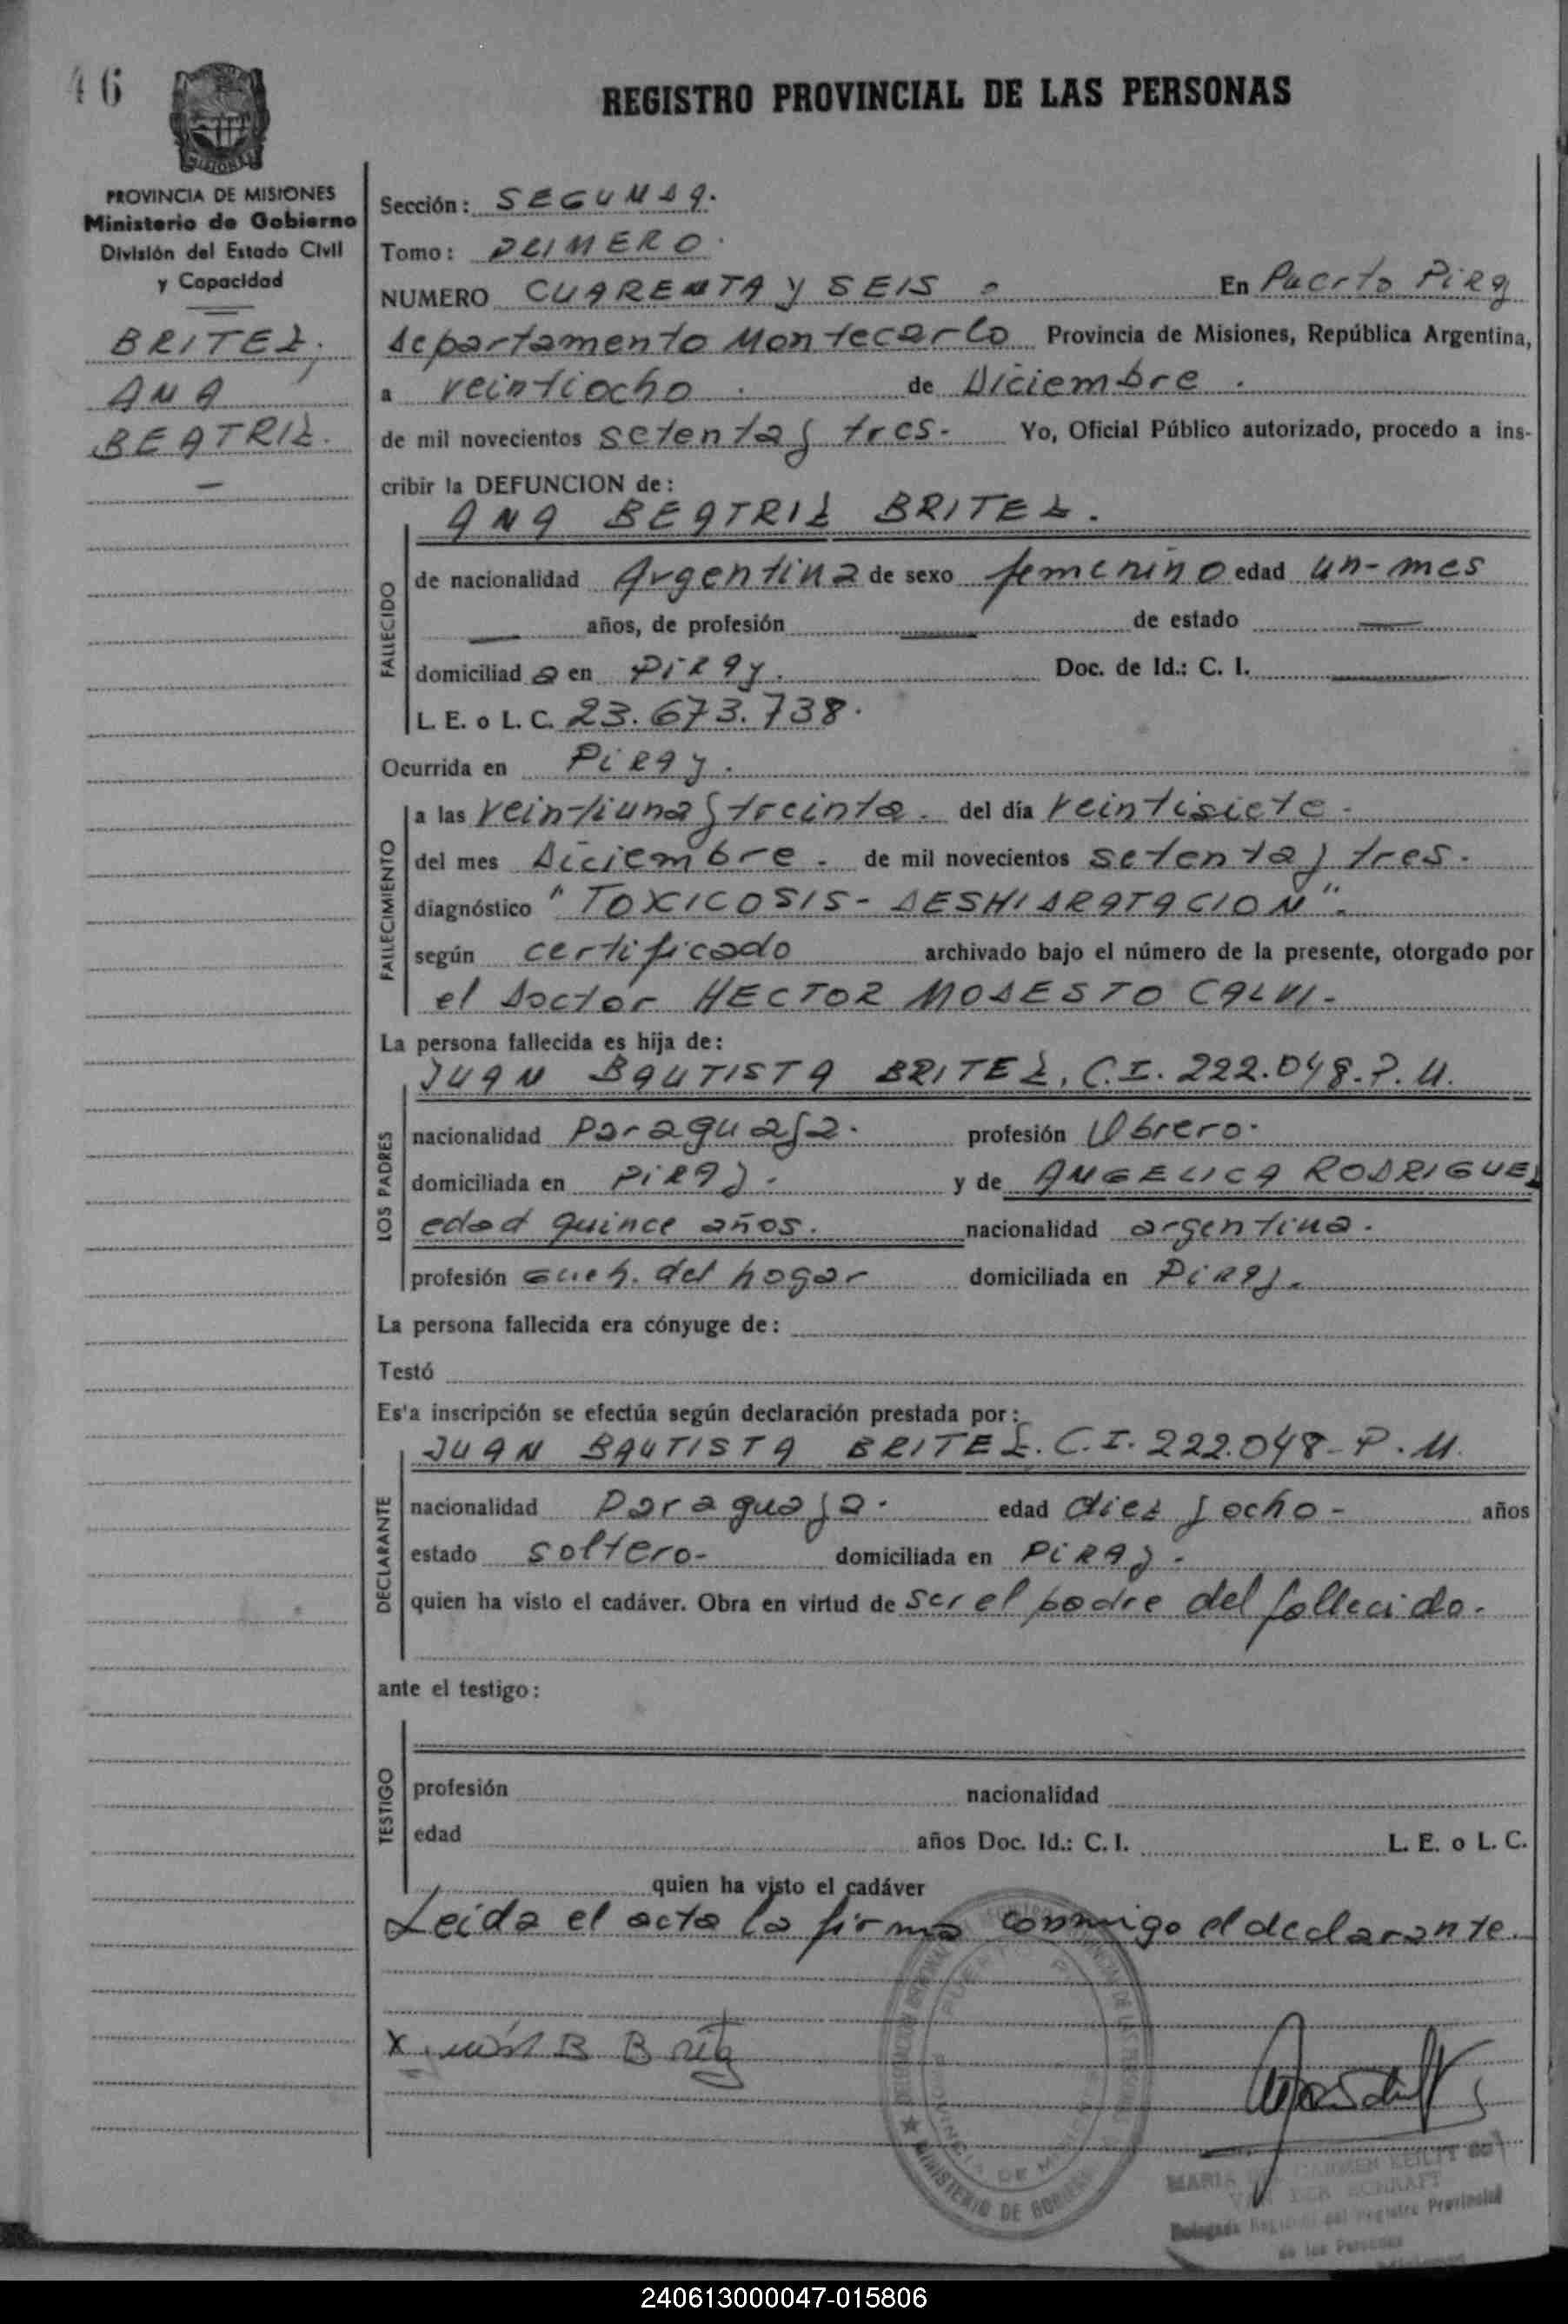 46
REGISTRO PROVINCIAL DE LAS PERSONAS
MISIONES
PROVINCIA DE MISIONES
Ministerio de Gobierno
División del Estado Civil
y Capacidad
BRITEZ,
ANA
BEATRIZ.
Sección: SEGUNDA.
Tomo: PRIMERO.
NUMERO CUARENTA y SEIS En Puerto Piray
departamento Montecarlo Provincia de Misiones, República Argentina,
a veintiocho. de Diciembre.
de mil novecientos setenta y tres- Yo, Oficial Público autorizado, procedo a ins-
cribir la DEFUNCION de:
ANA BEATRIZ BRITEZ.
FALLECIDO
de nacionalidad Argentina de sexo femenino edad un-mes
— años, de profesión — de estado —
domiciliad a en PIRAy. Doc. de Id.: C. I. —
L. E. o L. C. 23.673.738.
Ocurrida en PiRAy.
FALLECIMIENTO
a las veintiuna y treinta. del día veintisiete.
del mes Diciembre. de mil novecientos setenta y tres.
diagnóstico "TOXICOSIS- DESHIDRATACION".
según certificado archivado bajo el número de la presente, otorgado por
el Doctor HECTOR MODESTO CALVI-
La persona fallecida es hija de:
JUAN BAUTISTA BRITEZ, C.I. 222.048.P.M.
LOS PADRES
nacionalidad Paraguaya. profesión Obrero.
domiciliada en PiRAy. y de ANGELICA RODRIGUEZ
edad quince años. nacionalidad argentina.
profesión Queh. del hogar domiciliada en PiRAy.
La persona fallecida era cónyuge de:
Testó
Es'a inscripción se efectúa según declaración prestada por:
JUAN BAUTISTA BRITEZ. C.I. 222.048-P.M.
DECLARANTE
nacionalidad Paraguaya. edad diez y ocho- años
estado soltero- domiciliada en PiRAy.
quien ha visto el cadáver. Obra en virtud de ser el padre del fallecido.
ante el testigo:
TESTIGO
profesión nacionalidad
edad años Doc. Id.: C. I. L. E. o L. C.
quien ha visto el cadáver
Leida el acta la firma conmigo el declarante.
x Juan B Britez
MINISTERIO DE GOBIERNO
MARIA DEL CARMEN
Delegada del Registro Provincial
de las Personas
240613000047-015806